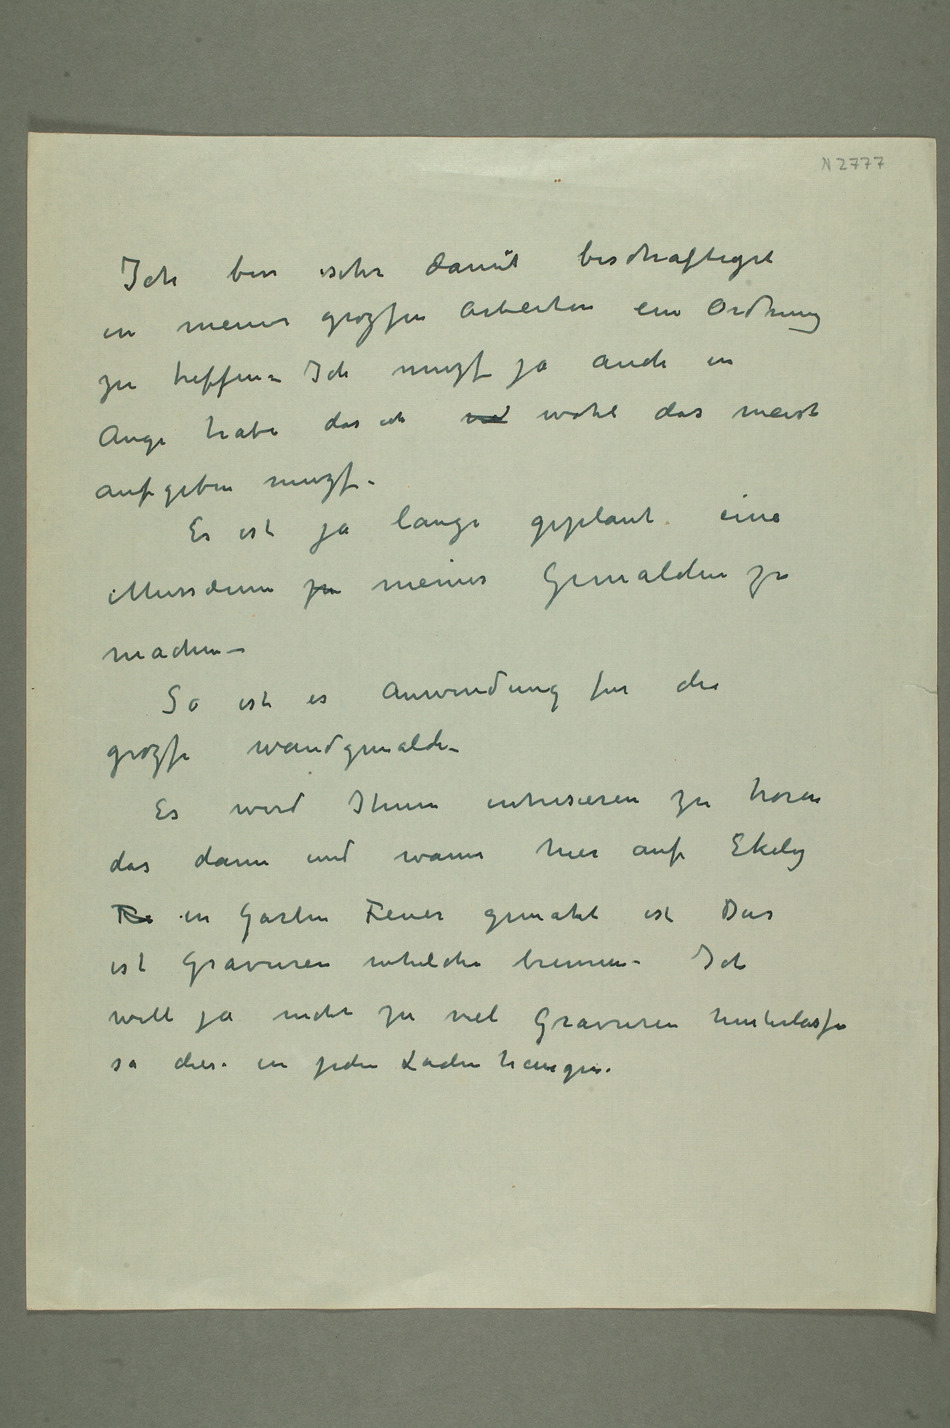 N 2777
Ich bin sehr damit beschäftiget
in meine grozfen Arbeiten ein Ordnung
zu treffen – Ich muzf ja auch in
Auge habe das ich wohl das meist
aufgeben muzf –
Es ist ja lange geplant eine
Mussæum zu meiner Gemälden zu
machen –
So ist es Anwendung fur die
grozfe wandgemalde –
Es wird Ihnen intresieren zu hören
das dann und wann hier auf Ekely
in Garten Feuer gemakt ist Das
ist Gravuren whelche brennen – Ich
will ja nicht zu viel Gravuren hinterlasfe
so dies in jeden Laden hängen.